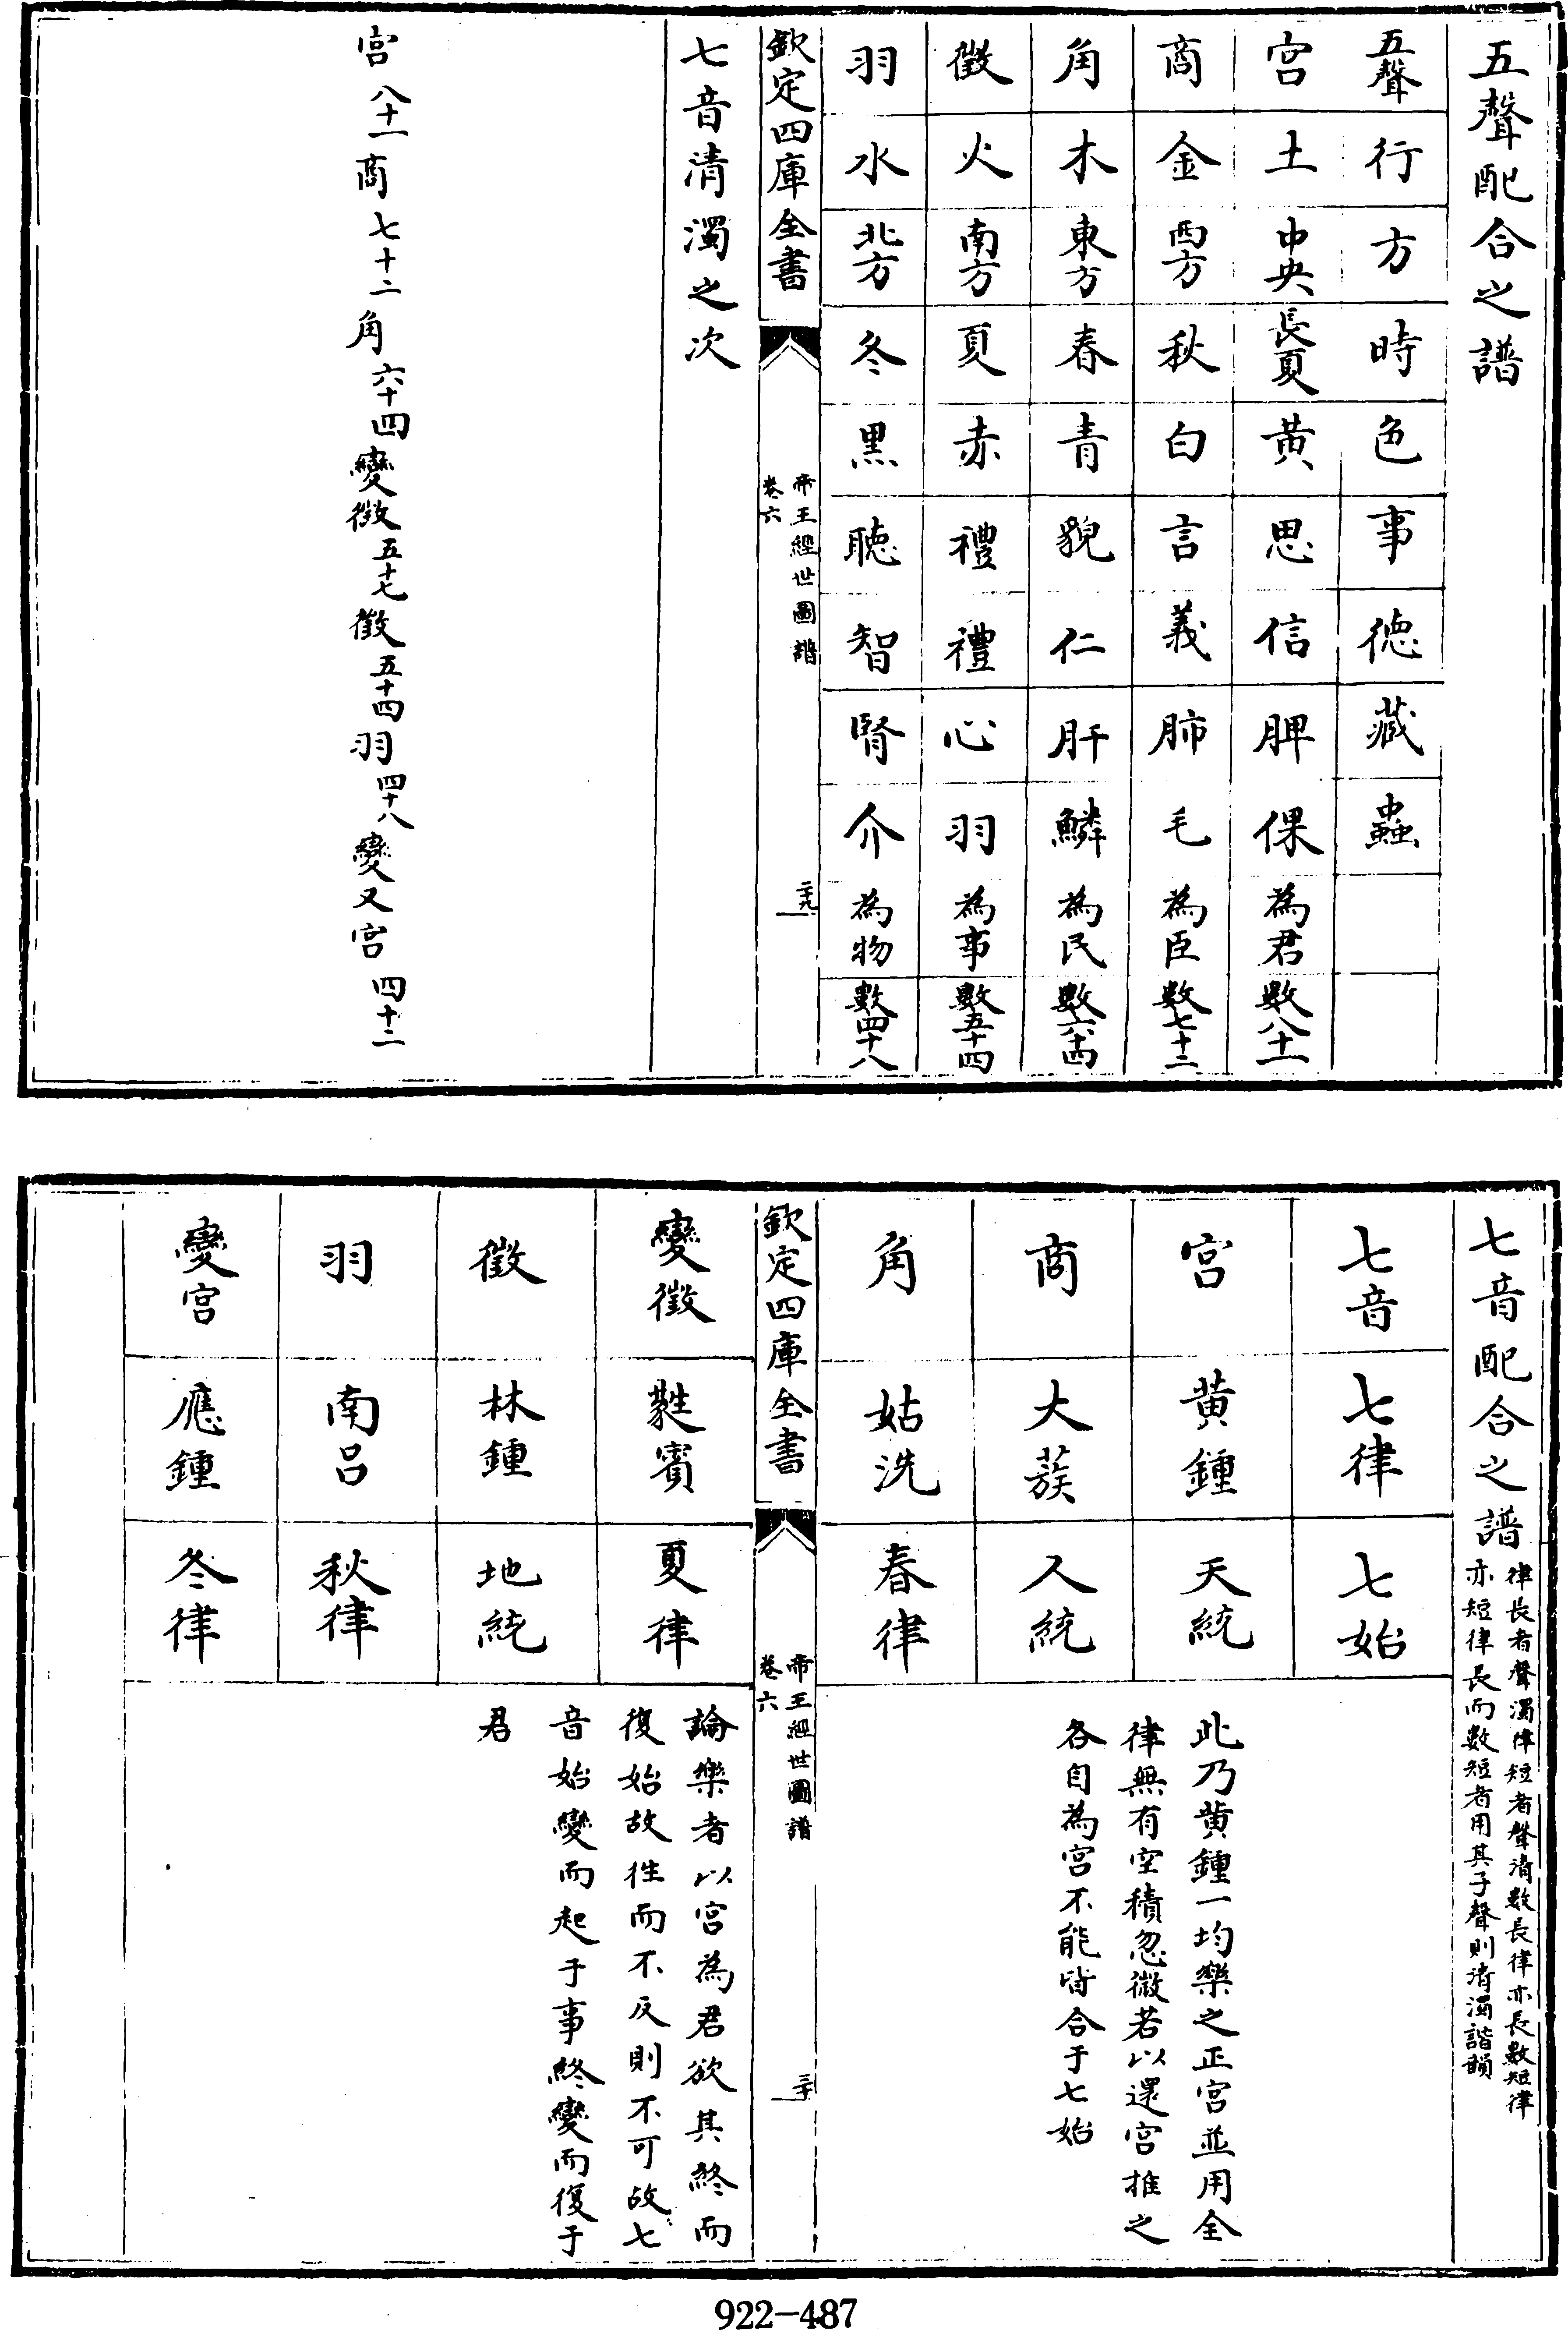 五聲配合之譜
五聲 行 方 時 色 事 徳 藏 蟲
宫 土 中央 長夏 黄 思 信 脾 倮 為君 數八十一
商 金 西方 秋 白 言 義 肺 毛 為臣 數七十二
角 木 東方 春 青 貌 仁 肝 鱗 為民 數六十四
徵 火 南方 夏 赤 禮 禮 心 羽 為事 數五十四
羽 水 北方 冬 黒 聴 智 腎 介 為物 數四十八
欽定四庫全書
帝王經世圖譜
卷六
二十九
七音清濁之次
宫 八十一 商 七十二 角 六十四 變徵 五十七 徵 五十四 羽 四十八 變又宫 四十二
七音配合之譜
律長者聲濁律短者聲清數長律亦長數短律
亦短律長而數短者用其子聲則清濁諧韻
七音 七律 七始
宫 黄鍾 天統
商 大蔟 人統
角 姑洗 春律
此乃黄鍾一均樂之正宫並用全
律無有空積忽微若以還宫推之
各自為宫不能皆合于七始
欽定四庫全書
帝王經世圖譜
卷六
三十
變徵 蕤賓 夏律
徵 林鍾 地統
羽 南吕 秋律
變宫 應鍾 冬律
論樂者以宫為君欲其終而
復始故徃而不反則不可故七
音始變而起于事終變而復于
君
922-487